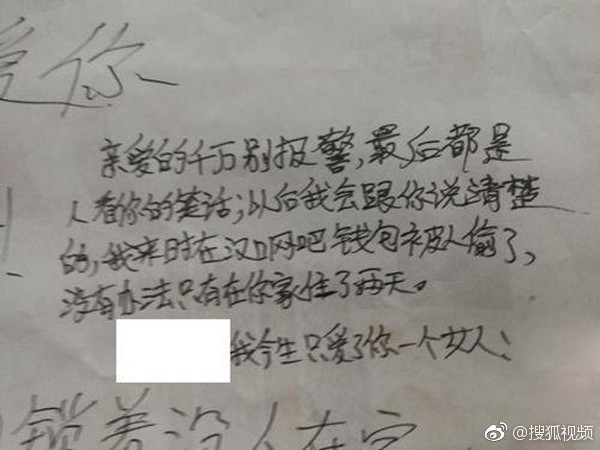 爱你
亲爱的千万别报警,最后都是
人看你的笑话;以后我会跟你说清楚
的,我来时在汉口网吧钱包被人偷了,
没有办法只有在你家住了两天。
我今生只爱了你一个女人;
锁着没人在家
@搜狐视频